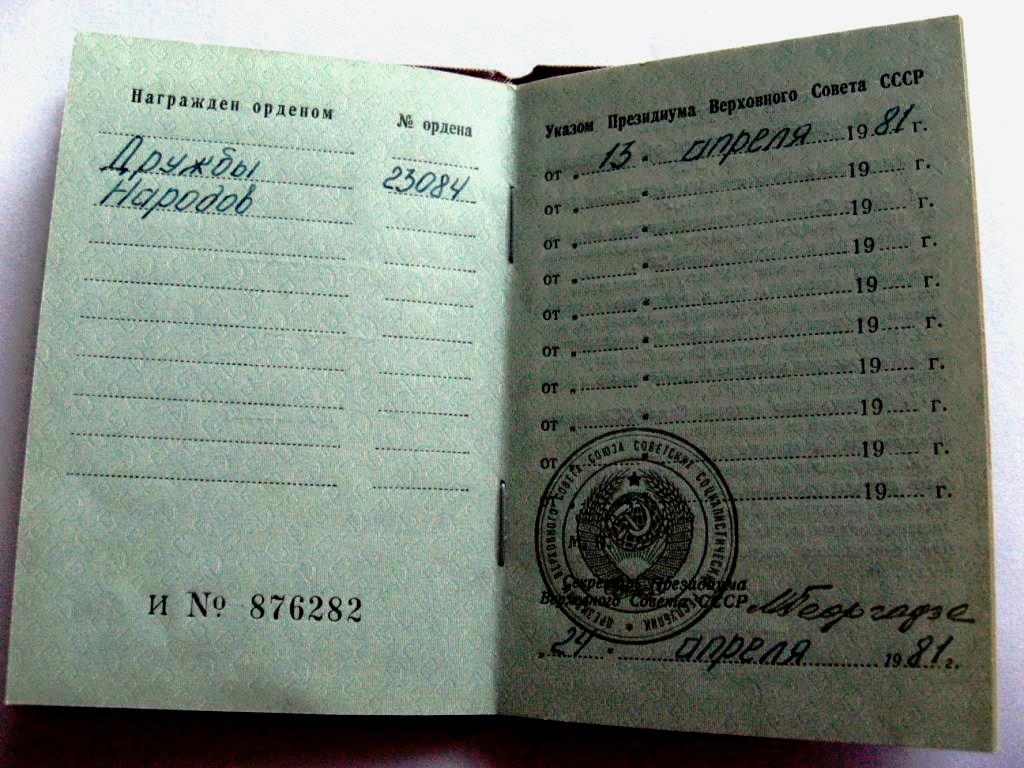 Награжден орденом
№ ордена
Дружбы
Народов
23084
И № 876282
Указом Президиума Верховного Совета СССР
от „ 13 " апреля 1981 г.
от „ " 19 г.
от „ " 19 г.
от „ " 19 г.
от „ " 19 г.
от „ " 19 г.
от „ " 19 г.
от „ " 19 г.
от „ " 19 г.
19 г.
ВЕРХОВНОГО СОВЕТА СОЮЗА СОВЕТСКИХ СОЦИАЛИСТИЧЕСКИХ РЕСПУБЛИК
Секретарь Президиума
Верховного Совета СССР МГеоргадзе
„ 24 " апреля 1981 г.